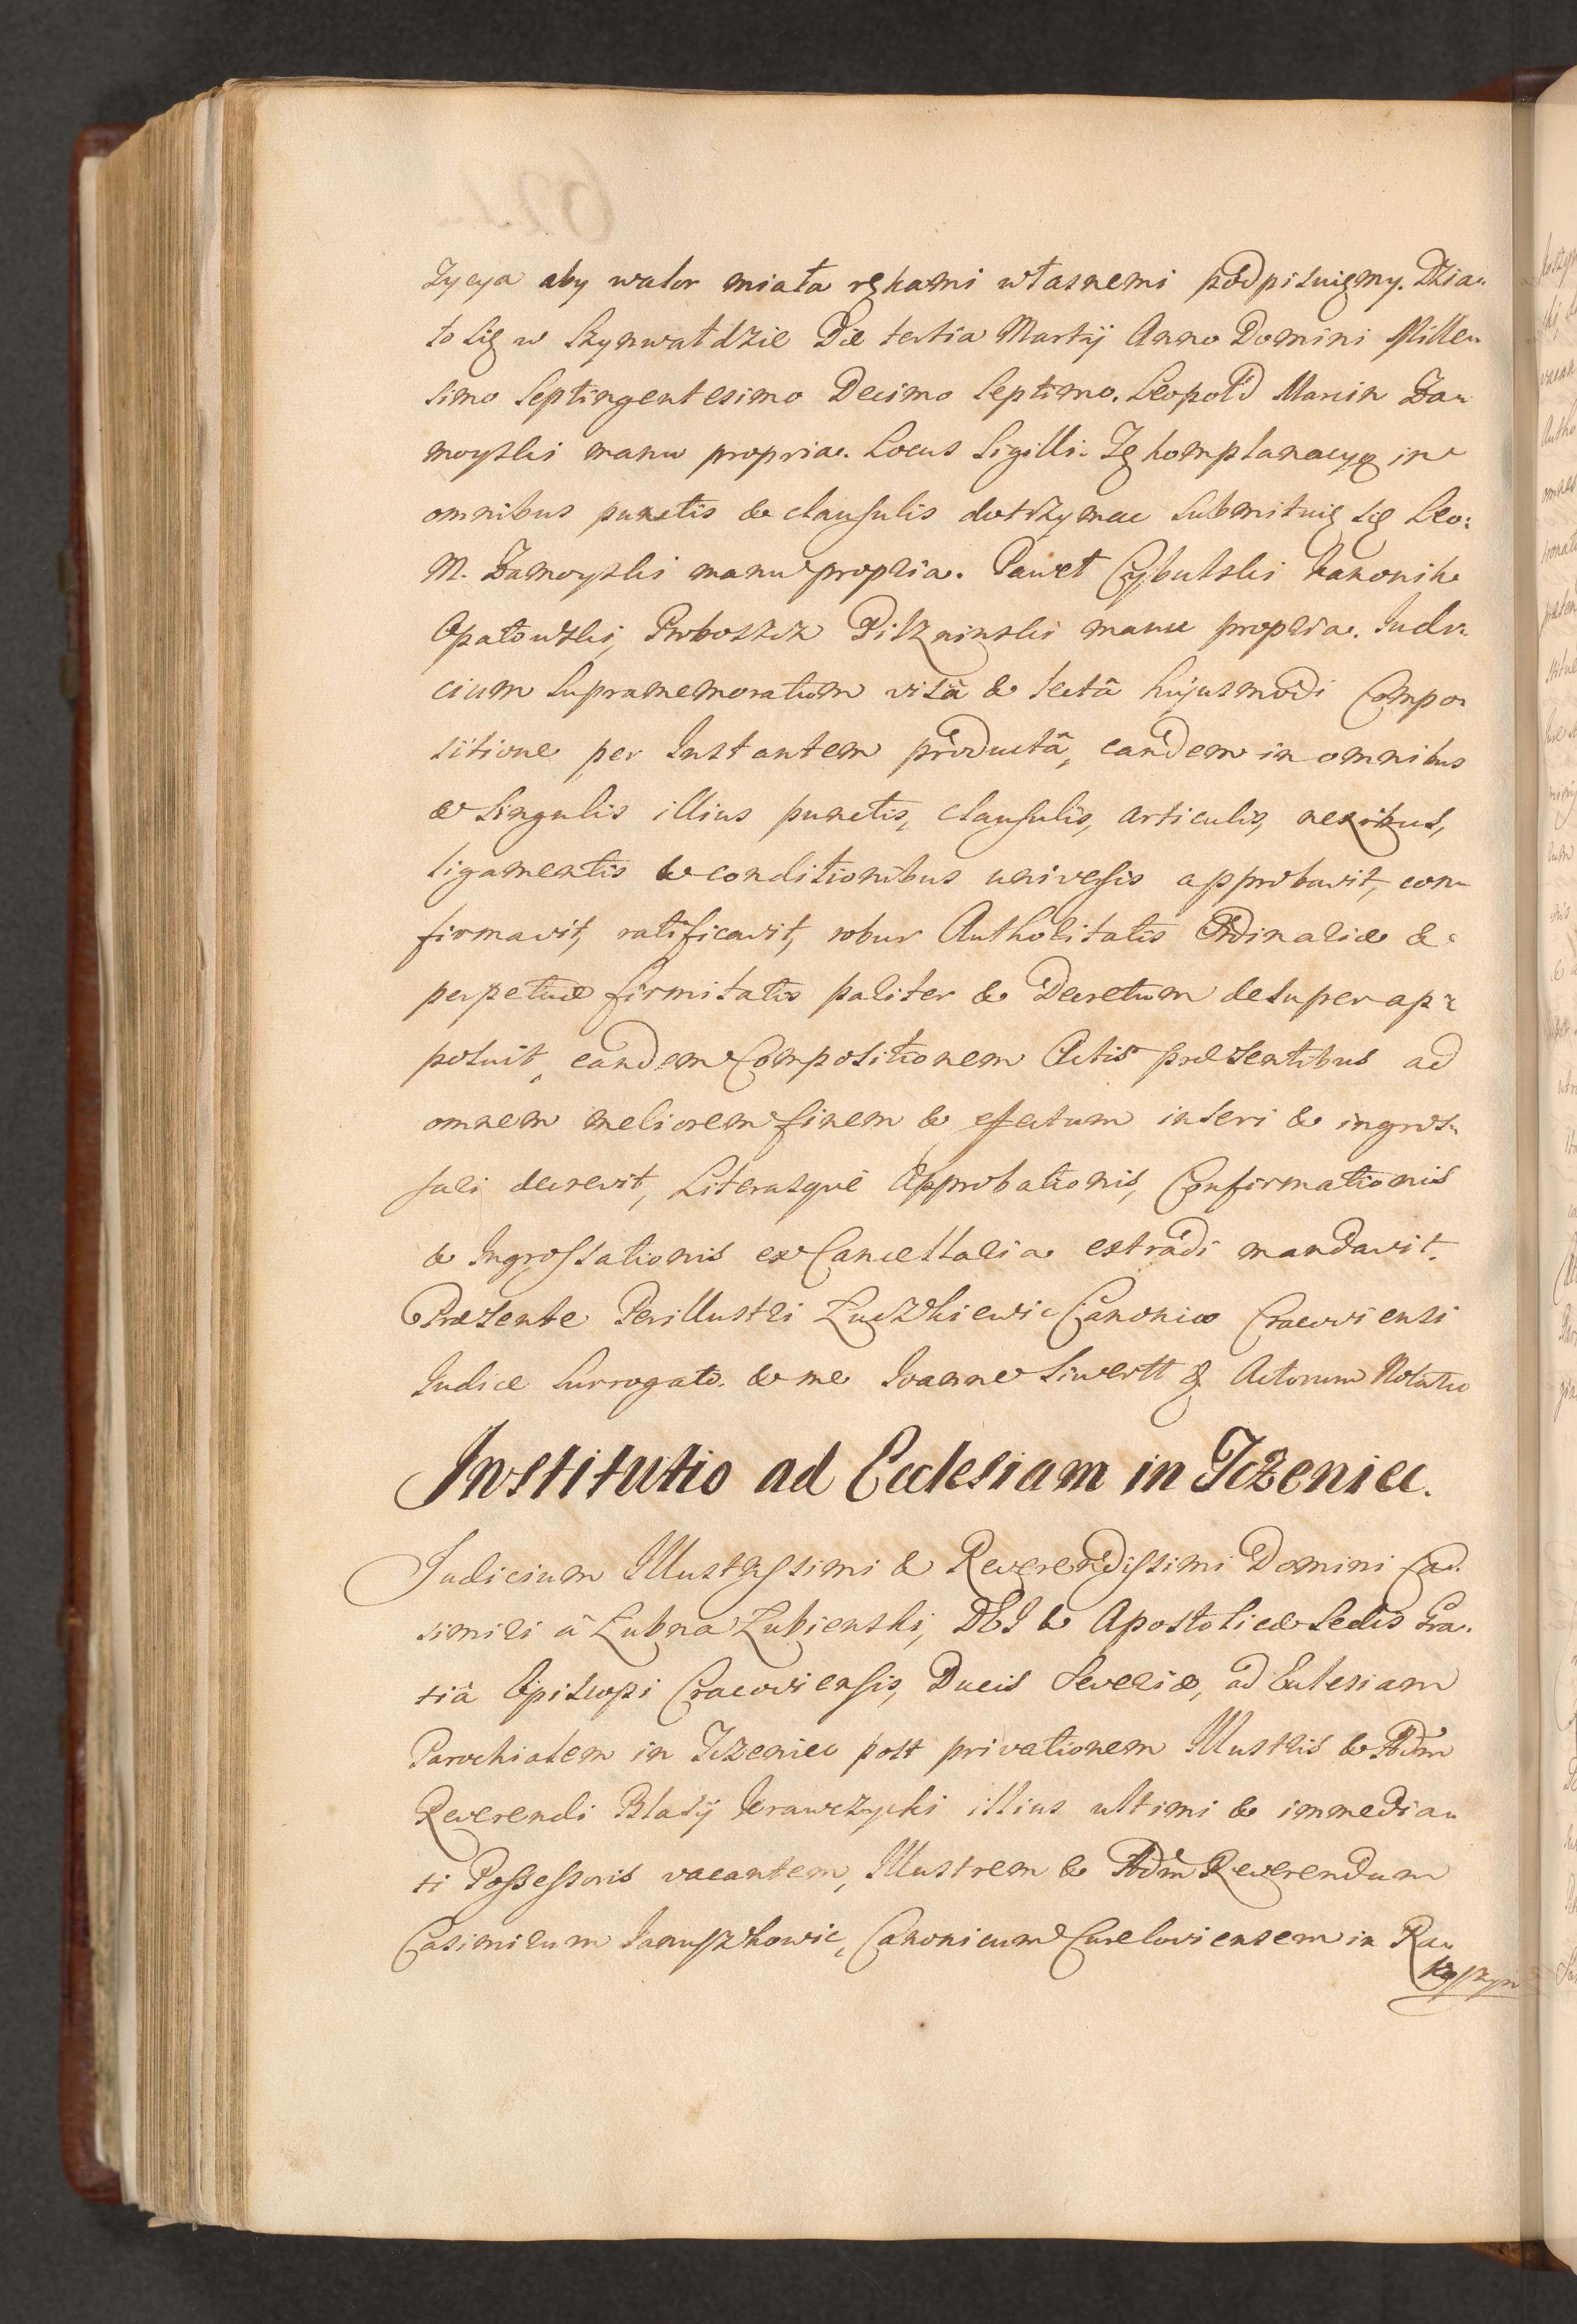 zycya aby walor miała rękami własnemi podpisuięmy. Dzia-
ło się w Szynwałdzie Die tertia Martij Anno Domini Mille-
simo Septingentesimo Decimo Septimo. Leopold Marcin Za-
moyski manu propria. Locus Sigilli. Tę komplanacyą in
omnibus punctis & clausulis dotrzymac submituię się Leo:
M. Zamoyski manu propria. Paweł Cybulski Kanonik
Opatowski, Proboszcz Pilzninski manu propria. Judi-
cium supramemoratum visâ & lectâ hujusmodi Compo-
sitione per Instantem productâ, eandem in omnibus
& singulis illius punctis, clausulis, articulis, nexibus,
ligamentis & conditionibus universis approbavit, con-
firmavit, ratificavit, robur Authoritatis Ordinariæ &
perpetuæ firmitatis pariter & Decretum desuper ap-
posuit, eandem Compositionem Actis præsentibus ad
omnem meliorem finem & efectum inseri & ingros-
sari decrevit, Literasque Approbationis, Confirmationis
& Ingrossationis ex Cancellaria extradi mandavit.
Præsente Perillustri Łuczkiewic Canonico Cracoviensi
Judice Surrogato. & me Joanne Siwertt Actorum Notario
Institutio ad Ecclesiam in Jczeniec.
Judicium Illustrissimi & Reverendissimi Domini Ca-
simiri â Łubna Łubienski, DEI & Apostolicæ Sedis Gra-
tiâ Episcopi Cracoviensis, Ducis Severiæ, ad Eclesiam
Parochialem in Jczeniec post privationem Illustris & Adm
Reverendi Blasij Krawczycki illius ultimi & immedia-
ti Possessoris vacantem, Illustrem & Adm Reverendum
Casimirum Januszkowic, Canonicum Cureloviensem in Ra-